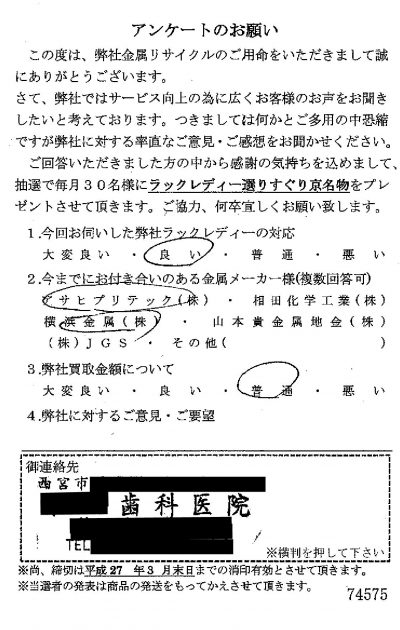 アンケートのお願い
この度は、弊社金属リサイクルのご用命をいただきまして誠
にありがとうございます。
さて、弊社ではサービス向上の為に広くお客様のお声をお聞き
したいと考えております。つきましては何かとご多用の中恐縮
ですが弊社に対する率直なご意見・ご感想をお聞かせください。
ご回答いただきました方の中から感謝の気持ちを込めまして、
抽選で毎月30名様にラックレディー選りすぐり京名物をプレ
ゼントさせて頂きます。ご協力、何卒宜しくお願い致します。
1.今回お伺いした弊社ラックレディーの対応
大変良い ・ 良い ・ 普通 ・ 悪い
2.今までにお付き合いのある金属メーカー様(複数回答可)
アサヒプリテック(株) ・ 相田化学工業(株)
横浜金属(株) ・ 山本貴金属地金(株)
(株)JGS ・ その他( )
3.弊社買取金額について
大変良い ・ 良い ・ 普通 ・ 悪い
4.弊社に対するご意見・ご要望
御連絡先
西宮市
歯科医院
TEL
※横判を押して下さい
※尚、締切は平成27年3月末日までの消印有効とさせて頂きます。
※当選者の発表は商品の発送をもってかえさせて頂きます。
74575